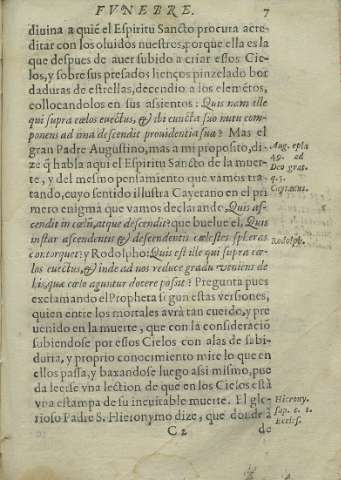 FVNEBRE. 7
diuina a quiẽ el Espiritu Sancto procura acre-
ditar con los oluidos nuestros, porque ella es la
que despues de auer subido a criar essos Cie-
los, y sobre sus presados lienços pinzelado bor
daduras de estrellas, decendio a los elemẽtos,
collocandolos en sus assientos: Quis nam ille
qui supra cælos euectus, & ibi euicta suo nutu com-
ponens ad ima descendit prouidentia sua? Mas el
gran Padre Augustino, mas a mi proposito, di-
Aug. epla
ze q̃ habla aqui el Espiritu Sancto de la muer-
49. ad
te, y del mesmo pensamiento que vamos tra-
Deo grat.
tando, cuyo sentido illustra Cayetano en el pri
q. 5.
mero enigma que vamos declarando. Quis as-
Cayetanus.
cendit in cœlũ, atque descendit? que buelue el, Quis
instar ascendentis & descendentis cælestes spheras
contorquet? y Rodolpho: Quis est ille qui supra cæ-
Rodolph.
los euectus, & inde ad nos reduce gradu veniens de
his, quæ cælo aguntur docere possit? Pregunta pues
exclamando el Propheta sigun estas versiones,
quien entre los mortales aurà tan cuerdo, y pre
uenido en la muerte, que con la consideraciõ
subiendose por essos Cielos con alas de sabi-
duria, y proprio conocimiento mire lo que en
ellos passa, y baxandose luego assi mismo, pue
da leerse vna lection de que en los Cielos està
vna estampa de su ineuitable muerte. El glo-
Hierony.
rioso Padre S. Hieronymo dize, que
sup. c. 1.
Eccles.
C 2 de